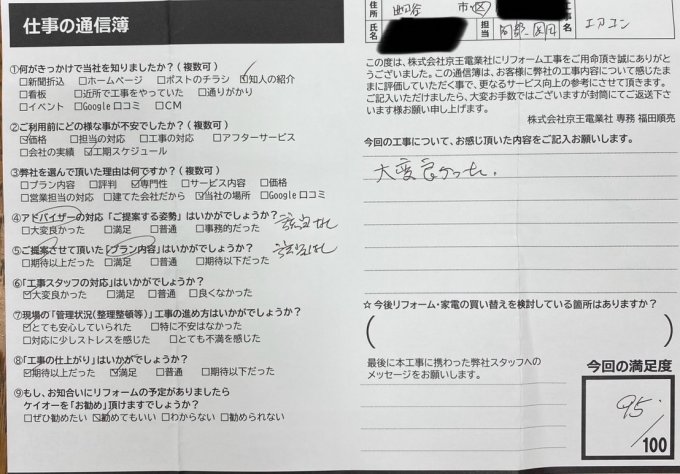 仕事の通信簿
①何がきっかけで当社を知りましたか?(複数可)
□新聞折込 □ホームページ □ポストのチラシ ☑知人の紹介
□看板 □近所で工事をやっていた □通りがかり
□イベント □Google口コミ □CM
②ご利用前にどの様な事が不安でしたか?(複数可)
☑価格 □担当の対応 □工事の対応 □アフターサービス
□会社の実績 ☑工期スケジュール
③弊社を選んで頂いた理由は何ですか?(複数可)
□プラン内容 □評判 ☑専門性 □サービス内容 □価格
□営業担当の対応 □建てた会社だから ☑当社の場所 □Google口コミ
④アドバイザーの対応「ご提案する姿勢」はいかがでしょうか? 該当なし
□大変良かった □満足 □普通 □事務的だった
⑤ご提案させて頂いた「プラン内容」はいかがでしょうか? 該当なし
□期待以上だった □満足 □普通 □期待以下だった
⑥「工事スタッフの対応」はいかがでしょうか?
☑大変良かった □満足 □普通 □良くなかった
⑦現場の「管理状況(整理整頓等)」工事の進め方はいかがでしょうか?
☑とても安心していられた □特に不安はなかった
□対応に少しストレスを感じた □とても不満を感じた
⑧「工事の仕上がり」はいかがでしょうか?
☑期待以上だった ☑満足 □普通 □期待以下だった
⑨もし、お知合いにリフォームの予定がありましたら
ケイオーを「お勧め」頂けますでしょうか?
□ぜひ勧めたい ☑勧めてもいい □わからない □勧められない
住所 四谷 市 区
氏名 担当 エアコン
この度は、株式会社京王電業社にリフォーム工事をご用命頂き誠にありがと
うございました。この通信簿は、お客様に弊社の工事内容について感じたま
まに評価していただく事で、更なるサービス向上の参考にさせて頂きます。
ご記入いただけましたら、大変お手数ではございますが封筒にてご返送下さ
います様お願い申し上げます。
株式会社京王電業社 専務 福田順亮
今回の工事について、お感じ頂いた内容をご記入お願いします。
大変良かった。
☆今後リフォーム・家電の買い替えを検討している箇所はありますか?
( )
最後に本工事に携わった弊社スタッフへの
メッセージをお願いします。
今回の満足度
95
/100